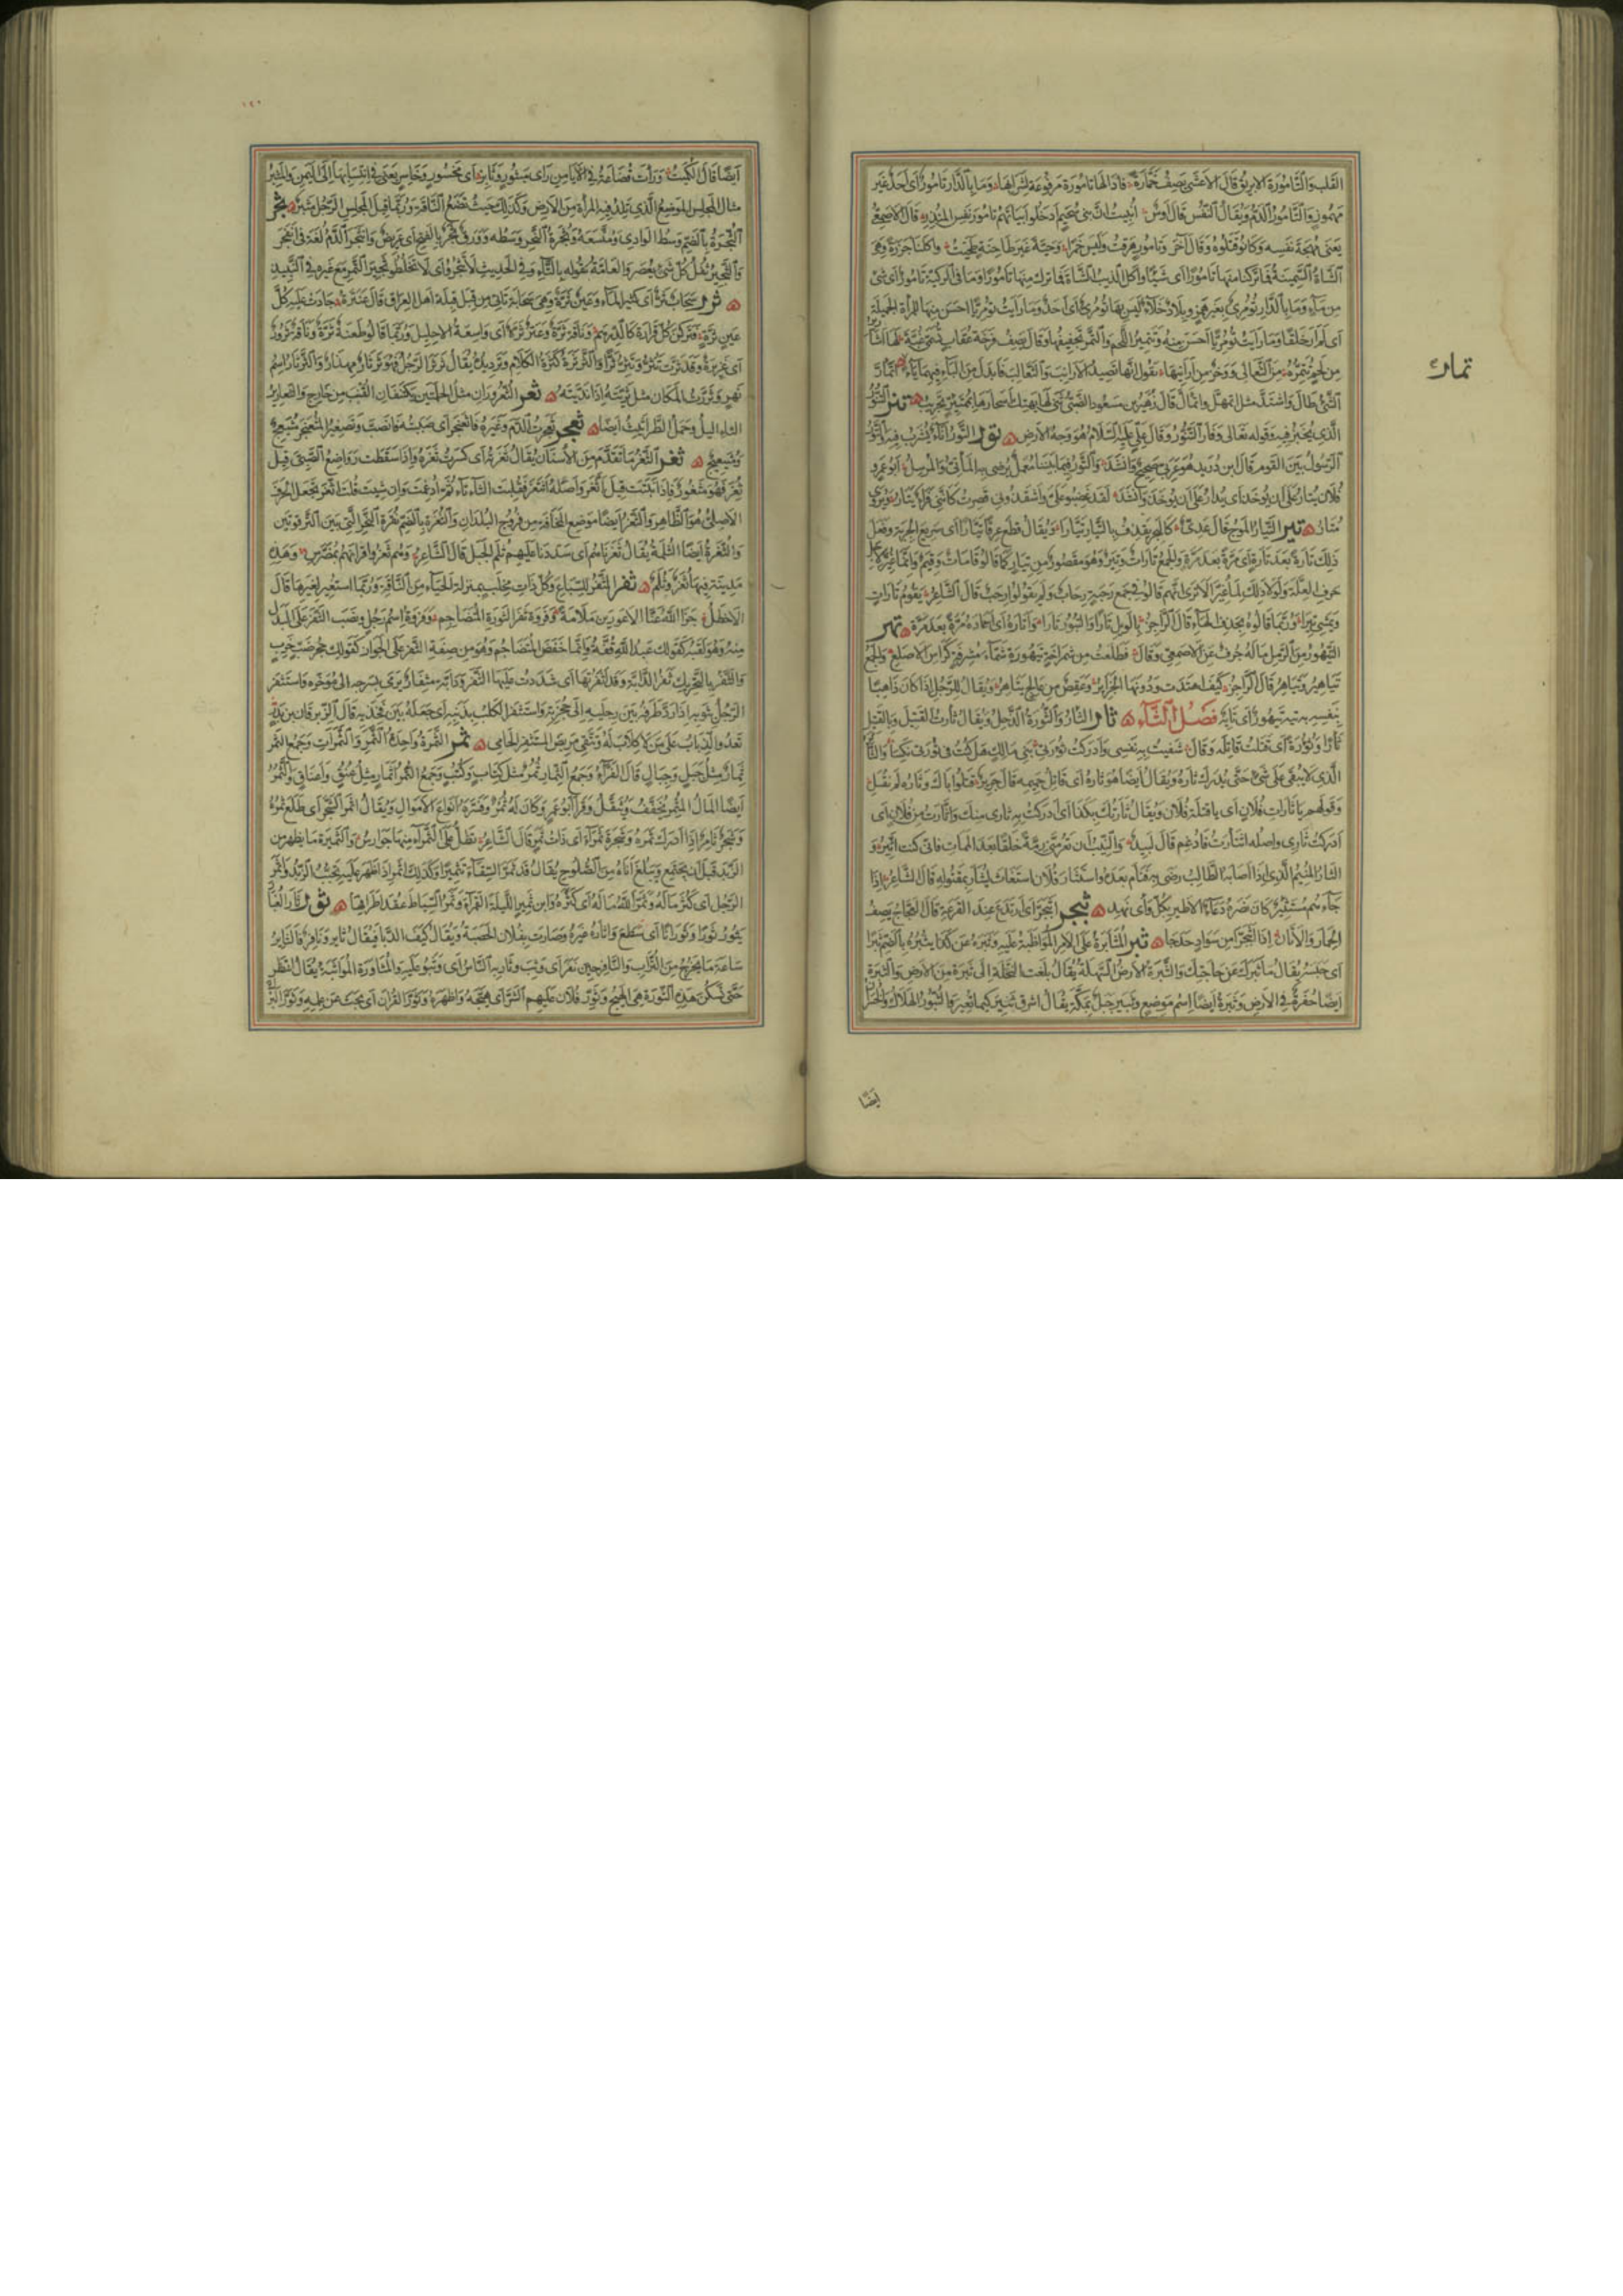 القلب والتامورة الابريق قال الاعشى يصف خمارة فاذا لها تامورة مرفوعة لشرابها وما بالدار تامور اى احد غير
مهموز والتامور الدم ويقال النفس قال اوس انبيت ان بنى سحيم ادخلوا ابياتهم تامور نفس المنذر قال الاصمعى
يعنى مهجة نفسه وكانوا قتلوه وقال آخر وتامور هرقت وليس خمرا وحبة غير طاحنة طحنت واكلنا جزرة وهى
الشاة السمينة فما تركنا منها تامورا اى شيئا واكل الذيب الشاة فما ترك منها تامورا وما فى الركية تامور اى شئ
من ماء وما بالدار تومرى بغير همز وبلاد خلاء ليس بها تومرى اى احد وما رايت تومريا احسن منها للمراة الجميلة
اى لم ار خلقا وما رايت تومريا احسن منه وتتمير اللحم والتمر تجفيفهما وقال يصف فرخة عقاب لها اشارير
من لحم تتمره من الثعالى ووخز من ارانيها يقول انها تصيد الارانب والثعالب فابدل من الباء فيهما ياء اتمار
تمار
الشئ طال واشتد مثل اتمهل واتمال قال زهير بن مسعود الضبى تنر التنور
الذى يخبز فيه وقوله تعالى وفار التنور قال على عليه السلام هو وجه الارض تور التور اناء يشرب فيه والتور
الرسول بين القوم قال ابن دريد هو عربى صحيح وانشد والتور فيما بيننا معمل يرضى به الماتى والمرسل ابو عمرو
فلان يتار على ان يوخذ اى يدار على ان يوخذ وانشد لقد غضبوا على واشقذونى فصرت كاننى فرا يتار ويروى
متار تير التيار الموج قال عدى كالبحر يقذف بالتيار تيارا ويقال قطع عرقا تيارا اى سريع الجرية وفعل
ذلك تارة بعد تارة اى مرة بعد مرة والجمع تارات وتير وهو مقصور من تيار كما قالوا قامات وقيم وانما غير لاجل
حرف العلة ولولا ذلك لما غير الا ترى انهم قالوا فى جمع رحبة رحاب ولم يقولوا رحب قال الشاعر يقوم تارات
ويمشى تيرا وربما قالوه بحذف الهاء قال الراجز بالويل تارا والثبور تارا واتاره اى اعاده مرة بعد مرة تهر
التيهور من الرمل ما له جرف عن الاصمعى وقال فطلعت من شمراخه تيهورة شماء مشرفة كراس الاصلع والجمع
تياهير وتياهر قال الراجز كيف اهتدت ودونها الجزاير وعقص من عالج تياهر ويقال للرجل اذا كان ذاهبا
بنفسه به تيه تيهور اى تايه فصل الثاء ثار الثار والثورة الذحل ويقال ثارت القتيل وبالقتيل
ثارا وثورة اى قتلت قاتله وقال شفيت به نفسى وادركت ثورتى بنى مالك هل كنت فى ثورتى نكسا والثاير
الذى لا يبقى على شئ حتى يدرك ثاره ويقال ايضا هو ثاره اى قاتل حميمه قال جرير قتلوا اباك وثاره لم يقتل
وقولهم يا ثارات فلان اى يا قتلة فلان ويقال ثارتك بكذا اى ادركت به ثارى منك واثارت من فلان اى
ادركت ثارى واصله اثتارت فادغم قال لبيد والنيب ان تعر منى رمة خلقا بعد الممات فانى كنت اتئر و
الثار المنيم الذى اذا اصابه الطالب رضى به فنام بعده واستثار فلان استغاث ليثار بمقتوله قال الشاعر اذا
جاءهم مستثير كان نصره دعاء الا طيروا بكل واى نهد ثبجر اثبجر اى ارتدع عند الفزعة قال العجاج يصف
الحمار والاتان اذا اثبجرا من سواد حدجا ثبر المثابرة على الامر المواظبة عليه وثبره عن كذا يثبره بالضم ثبرا
اى حبسه يقال ما ثبرك عن حاجتك والثبرة الارض السهلة يقال بلغت النخلة الى ثبرة من الارض والثبرة
ايضا حفرة فى الارض وثبرة ايضا اسم موضع وثبير جبل بمكة يقال اشرق ثبير كيما نغير والثبور الهلاك والخسران
ايضا
١٩٠
ايضا قال الكميت ورات قضاعة فى الايامن راى مثبور وثابر اى مخسور وخاسر يعنى فى انتسابها الى اليمن والمثبر
مثال المجلس الموضع الذى تلد فيه المراة من الارض وكذلك حيث تضع الناقة وربما قيل لمجلس الرجل مثبر ثجر
الثجرة بالضم وسط الوادى ومتسعه وثجرة النحر وسطه وورق ثجر بالفتح اى عريض وانثجر الدم لغة فى انفجر
والثجير ثفل كل شئ يعصر والعامة تقوله بالتاء وفى الحديث لا تثجروا اى لا تخلطوا ثجير التمر مع غيره فى النبيذ
ثرر سحاب ثر اى كثير الماء وعين ثرة وهى سحابة تاتى من قبل قبلة اهل العراق قال عنترة جادت عليه كل
عين ثرة فتركن كل قرارة كالدرهم وناقة ثرة وعنز ثرة اى واسعة الاحليل وربما قالوا طعنة ثرة وناقة ثرور
اى غزيرة وقد ثرت تثر وتثر ثرا والثرثرة كثرة الكلام وترديده يقال ثرثر الرجل فهو ثرثار مهذار والثرثار اسم
نهر وثررت المكان مثل ثريته اذا نديته ثعر الثعروران مثل الحلمتين يكتنفان القنب من خارج والثعارير
الثاليل وحمل الطراثيث ايضا ثعجر ثعجرت الدم وغيره فاثعنجر اى صببته فانصب وتصغير المثعنجر مثيعج
ومثيعيج ثغر الثغر ما تقدم من الاسنان يقال ثغرته اى كسرت ثغره واذا سقطت رواضع الصبى قيل
ثغر فهو مثغور فاذا نبتت قيل اتغر واصله اثتغر فقلبت الثاء تاء ثم ادغمت وان شيت قلت اثغر بجعل الحرف
الاصلى هو الظاهر والثغر ايضا موضع المخافة من فروج البلدان والثغرة بالضم نقرة النحر التى بين الترقوتين
والثغرة ايضا الثلمة يقال ثغرناهم اى سددنا عليهم ثلم الجبل قال الشاعر وهم ثغروا اقرانهم بمضرس وهذه
مدينة فيها ثغر وثلم ثفر الثفر للسباع وكل ذات مخلب بمنزلة الحياء من الناقة وربما استعير لغيرها قال
الاخطل جزى الله عنا الاعورين ملامة وفروة ثفر الثورة المتضاجم وفروة اسم رجل ونصب الثفر على البدل
منه وهو لقبه كقولك عبد الله قفة وانما خفض المتضاجم وهو من صفة الثفر على الجوار كقولك جحر ضب خرب
والثفر بالتحريك ثفر الدابة وقد اثفرتها اى شددت عليها الثفر ودابة مثفار يرمى بسرجه الى موخره واستثفر
الرجل بثوبه اذا رد طرفه بين رجليه الى حجزته واستثفر الكلب بذنبه اى جعله بين فخذيه قال الزبرقان بن بدر
تعدو الذياب على من لا كلاب له وتتقى مربض المستثفر الحامى ثمر الثمرة واحدة الثمر والثمرات وجمع الثمر
ثمار مثل جبل وجبال قال الفراء وجمع الثمار ثمر مثل كتاب وكتب وجمع الثمر اثمار مثل عنق واعناق والثمر
ايضا المال المثمر يخفف ويثقل وقرا ابو عمرو وكان له ثمر وفسره انواع الاموال ويقال اثمر الشجر اى طلع ثمره
وشجر ثامر اذا ادرك ثمره وشجرة ثمراء اى ذات ثمر قال الشاعر تظل على الثمراء منها جوارس والثميرة ما يظهر من
الزبد قبل ان يجتمع ويبلغ اناه من الصلوح يقال قد ثمر السقاء تثميرا وكذلك اثمر اذا ظهر عليه تحبب الزبد واثمر
الرجل اى كثر ماله وثمر الله ماله اى كثره وابن ثمير الليلة القمراء وثمر السياط عقد اطرافها ثور ثار الغبار
يثور ثورا وثورانا اى سطع واثاره غيره وثارت بفلان الحصبة ويقال كيف الدبا فيقال ثاير ونافر فالثاير
ساعة ما يخرج من التراب والنافر حين نفر اى وثب وثار به الناس اى وثبوا عليه والمثاورة المواثبة يقال انتظر
حتى تسكن هذه الثورة وهى الهيج وثور فلان عليهم الشر اى هيجه واظهره وثور القران اى بحث عن علمه وثور البرك